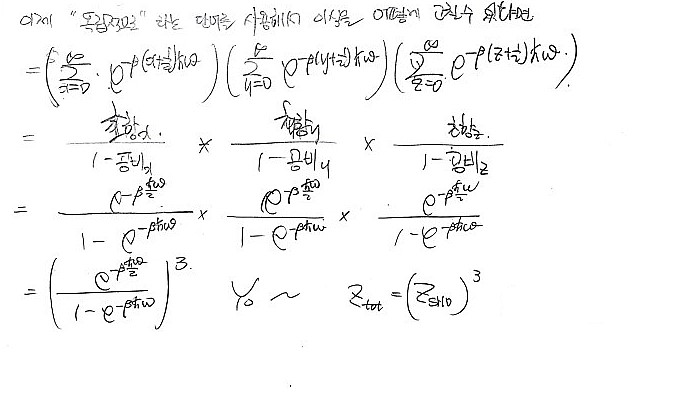 이제 "독립적으로" 라는 단어를 사용해서 이식을 어떻게 고칠수 있냐면
= (∑_{x=0}^{∞} e^{-β(x+½)ħω}) (∑_{y=0}^{∞} e^{-β(y+½)ħω}) (∑_{z=0}^{∞} e^{-β(z+½)ħω})
= 초항x / 1-공비x × 초항y / 1-공비y × 초항z / 1-공비z
= e^{-βħω/2} / 1-e^{-βħω} × e^{-βħω/2} / 1-e^{-βħω} × e^{-βħω/2} / 1-e^{-βħω}
= (e^{-βħω/2} / 1-e^{-βħω})^3. Yo ~ Z_{tot} = (Z_{SHO})^3